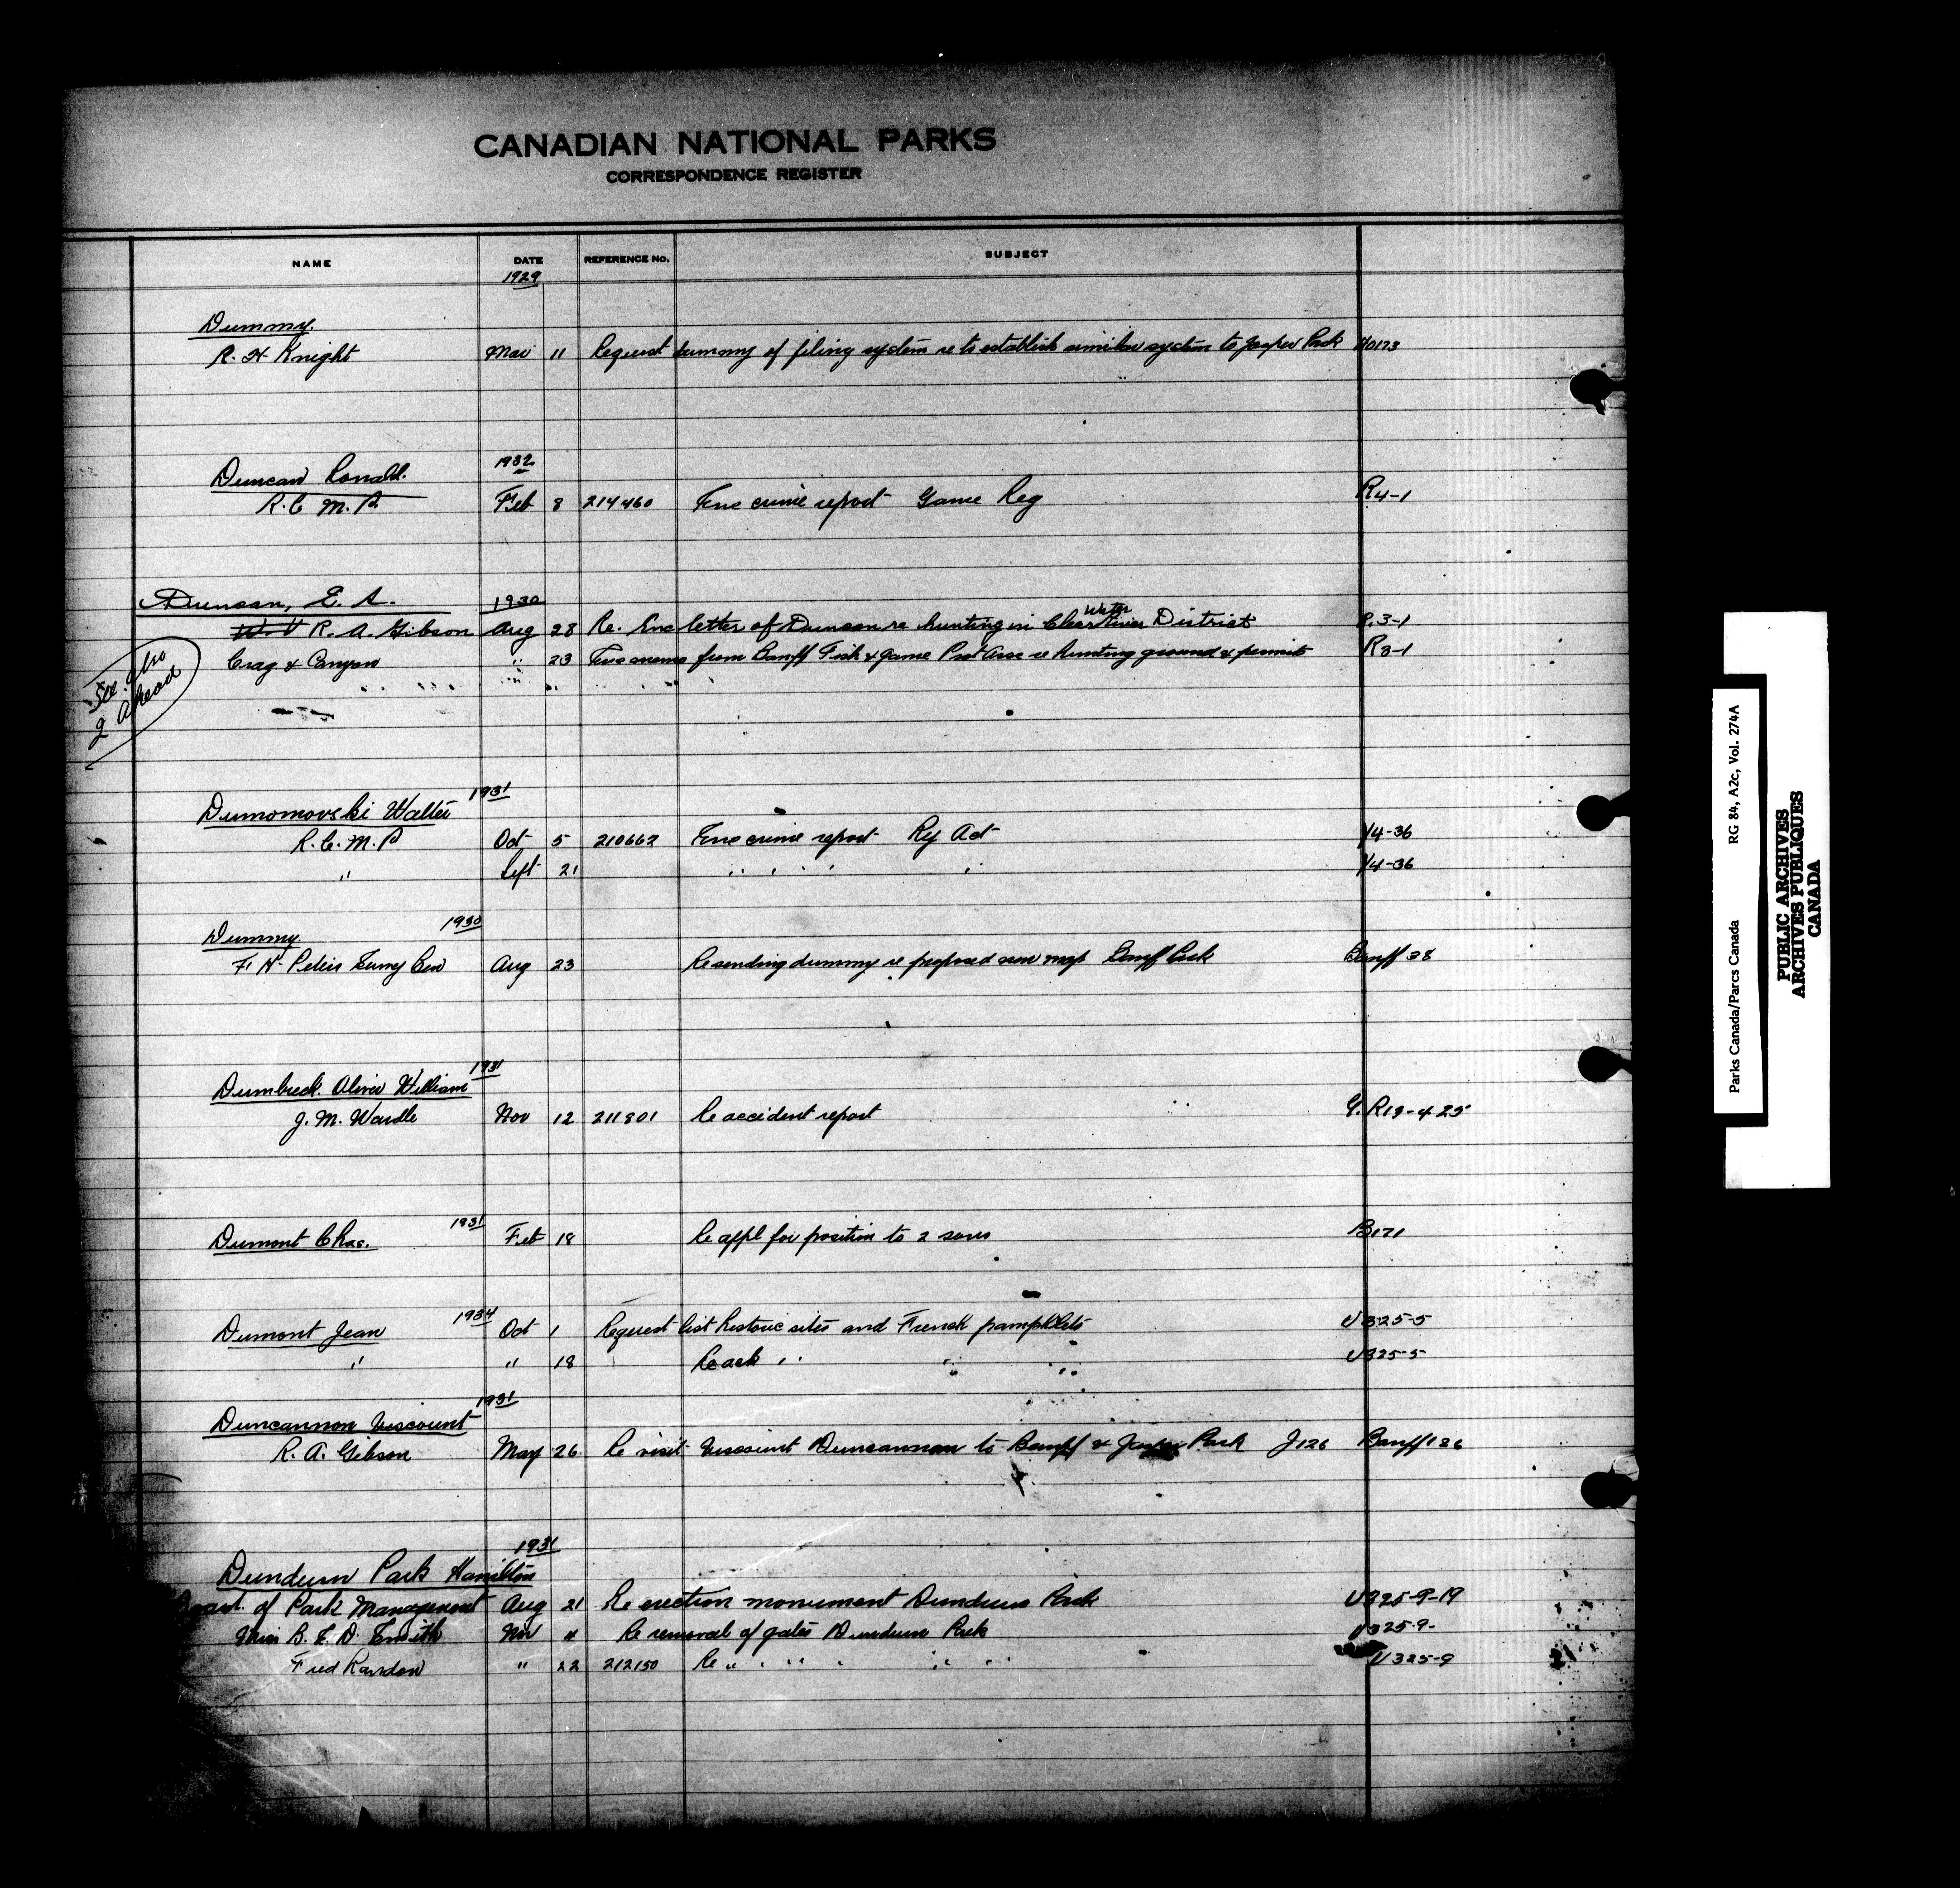 CANADIAN NATIONAL PARKS
CORRESPONDENCE REGISTER
NAME DATE REFERENCE No. SUBJECT
1929
Dummy.
R. H. Knight Mar 11 Request dummy of filing system re to establish similar system to Jasper Park U0173
1932
Duncan Ronald.
R.C.M.P. Feb 8 214460 Enc crime report Game Reg R4-1
Duncan, E. A. 1930
R. A. Gibson Aug 28 Re. Enc letter of Duncan re hunting in Clear Water River District R3-1
Crag & Canyon " 23 from Banff Fish & Game Prot Assc re hunting ground & permits R3-1
See Also
2 Ahead
Dumomovski Walter 1931
R.C.M.P Oct 5 210662 Enc crime report Ry Act Y4-36
" Sept 21 " " " " Y4-36
Dummy. 1930
F. H. Peters Survey Gen Aug 23 Re sending dummy re proposed new map Banff Park Banff 28
Dumbreck. Oliver William 1931
J. M. Wardle Nov 12 211801 Re accident report G.R19-4-25
Dumont Chas. 1931 Feb 18 Re appl for position to 2 sons B171
Dumont Jean 1934 Oct 1 Request list historic sites and French pamphlets U325-5
" " 18 Re ack " " " U325-5
Duncannon Viscount 1931
R. A. Gibson May 26 Re visit Viscount Duncannon to Banff & Jasper Park J126 Banff 126
1931
Dundurn Park Hamilton
Board of Park Management Aug 21 Re erection monument Dundurn Park U325-9-19
Miss B. E. D. Smith Nov " Re removal of gates Dundurn Park U325-9-
Fred " 22 212150 Re " " " " " " U325-9
Parks Canada/Parcs Canada RG 84, A2c, Vol. 274A
PUBLIC ARCHIVES
ARCHIVES PUBLIQUES
CANADA